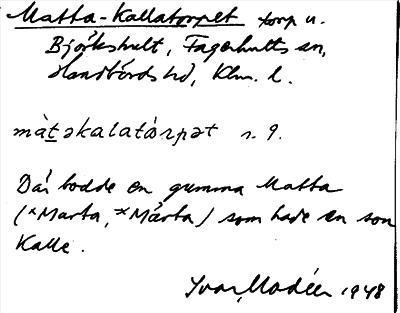 Matta-Kallatorpet torp u.
Björkshult, Fagerhults sn,
Handbörds hd, Klm. l.
màtəkalatårpət s. 9.
Där bodde en gumma Matta
(*Marta, *Märta) som hade en son
Kalle.
Ivar Modéer 1948